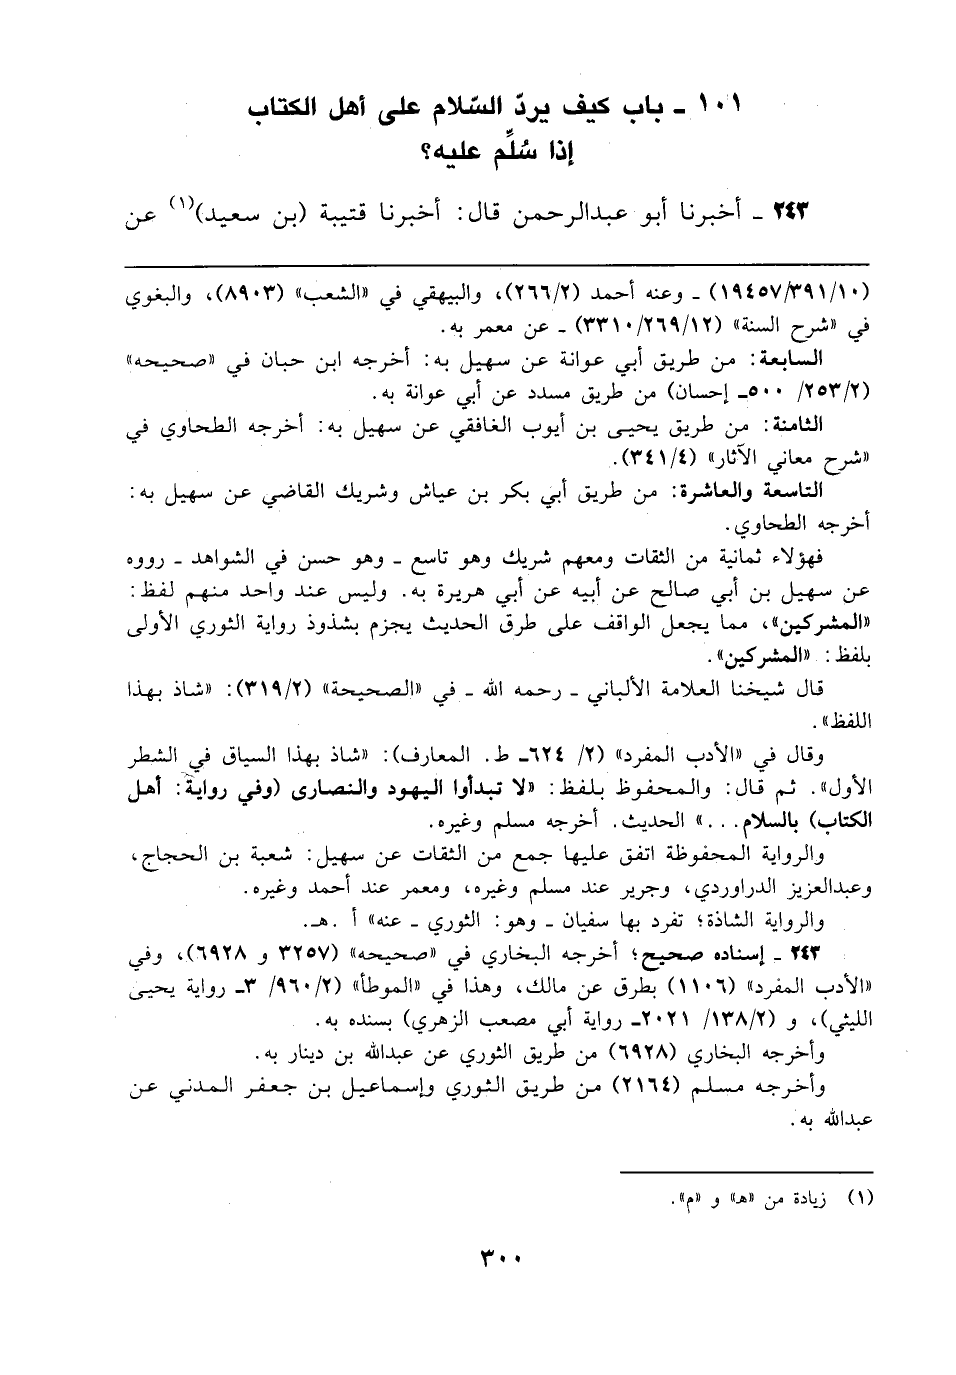 ١٠١ ـ باب كيف يردّ السّلام على أهل الكتاب
إذا سُلِّم عليه؟
٢٤٣ ـ أخبرنا أبو عبدالرحمن قال: أخبرنا قتيبة (بن سعيد)(١) عن
(١٩٤٥٧/٣٩١/١٠) ـ وعنه أحمد (٢٦٦/٢)، والبيهقي في «الشعب» (٨٩٠٣)، والبغوي
في «شرح السنة» (٣٣١٠/٢٦٩/١٢) ـ عن معمر به.
السابعة: من طريق أبي عوانة عن سهيل به: أخرجه ابن حبان في «صحيحه»
(٢٥٣/٢/ ٥٠٠ـ إحسان) من طريق مسدد عن أبي عوانة به.
الثامنة: من طريق يحيى بن أيوب الغافقي عن سهيل به: أخرجه الطحاوي في
«شرح معاني الآثار» (٣٤١/٤).
التاسعة والعاشرة: من طريق أبي بكر بن عياش وشريك القاضي عن سهيل به:
أخرجه الطحاوي.
فهؤلاء ثمانية من الثقات ومعهم شريك وهو تاسع ـ وهو حسن في الشواهد ـ رووه
عن سهيل بن أبي صالح عن أبيه عن أبي هريرة به. وليس عند واحد منهم لفظ:
«المشركين»، مما يجعل الواقف على طرق الحديث يجزم بشذوذ رواية الثوري الأولى
بلفظ: «المشركين».
قال شيخنا العلامة الألباني ـ رحمه الله ـ في «الصحيحة» (٣١٩/٢): «شاذ بهذا
اللفظ».
وقال في «الأدب المفرد» (٢/ ٦٢٤ـ ط. المعارف): «شاذ بهذا السياق في الشطر
الأول». ثم قال: والمحفوظ بلفظ: «لا تبدأوا اليهود والنصارى (وفي رواية: أهل
الكتاب) بالسلام...» الحديث. أخرجه مسلم وغيره.
والرواية المحفوظة اتفق عليها جمع من الثقات عن سهيل: شعبة بن الحجاج،
وعبدالعزيز الدراوردي، وجرير عند مسلم وغيره، ومعمر عند أحمد وغيره.
والرواية الشاذة؛ تفرد بها سفيان ـ وهو: الثوري ـ عنه» أ .هـ.
٢٤٣ ـ إسناده صحيح؛ أخرجه البخاري في «صحيحه» (٣٢٥٧ و ٦٩٢٨)، وفي
«الأدب المفرد» (١١٠٦) بطرق عن مالك، وهذا في «الموطأ» (٩٦٠/٢/ ٣ـ رواية يحيى
الليثي)، و (١٣٨/٢/ ٢٠٢١ـ رواية أبي مصعب الزهري) بسنده به.
وأخرجه البخاري (٦٩٢٨) من طريق الثوري عن عبدالله بن دينار به.
وأخرجه مسلم (٢١٦٤) من طريق الثوري وإسماعيل بن جعفر المدني عن
عبدالله به.
(١) زيادة من «هـ» و «م».
٣٠٠